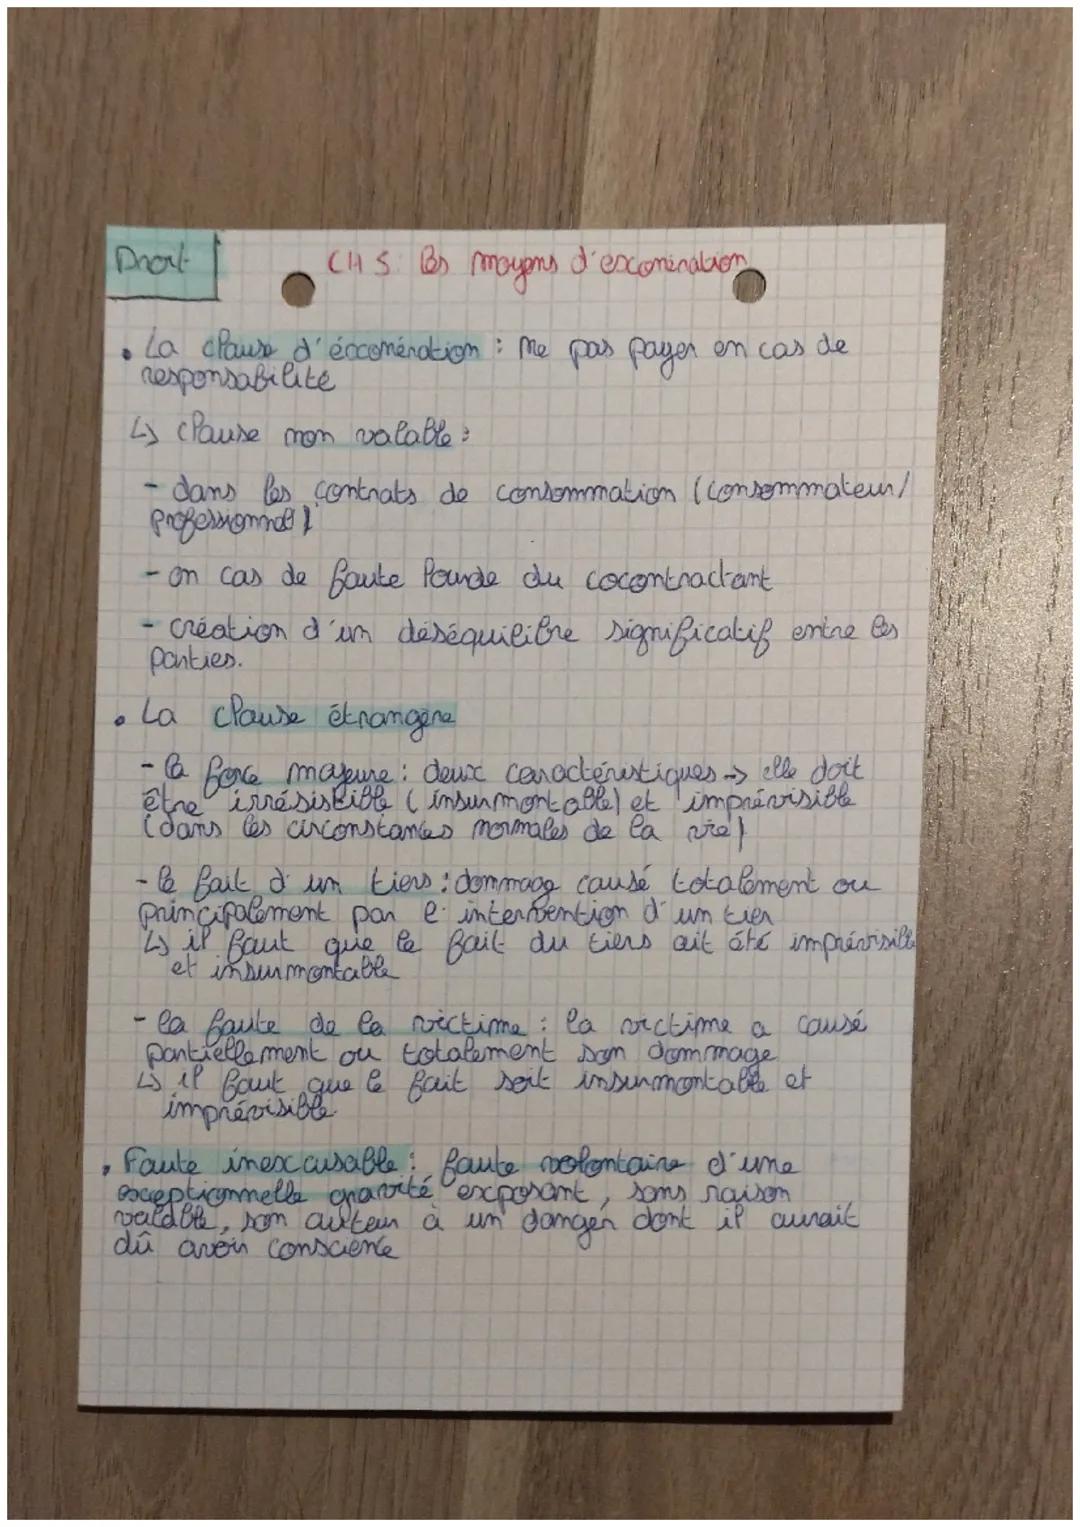 Droit
CH 5: les moyens d'exonération
• La clause d'éxconération : ne pas payer en cas de
responsabilité
↳ clause non valable :
- dans les contrats de consommation (consommateur/
professionnel)
- en cas de faute lourde du cocontractant
- création d'un déséquilibre significatif entre les
parties.
• La clause étrangère
- la force majeure : deux caractéristiques → elle doit
être irrésistible (insurmontable) et imprévisible
(dans les circonstances normales de la vie)
- le fait d'un tiers : dommage causé totalement ou
principalement par l'intervention d'un tier
↳ il faut que le fait du tiers ait été imprévisible
et insurmontable
- la faute de la victime : la victime a causé
partiellement ou totalement son dommage
↳ il faut que le fait soit insurmontable et
imprévisible
• Faute inexcusable : faute volontaire d'une
exceptionnelle gravité exposant, sans raison
valable, son auteur à un danger dont il aurait
dû avoir conscience